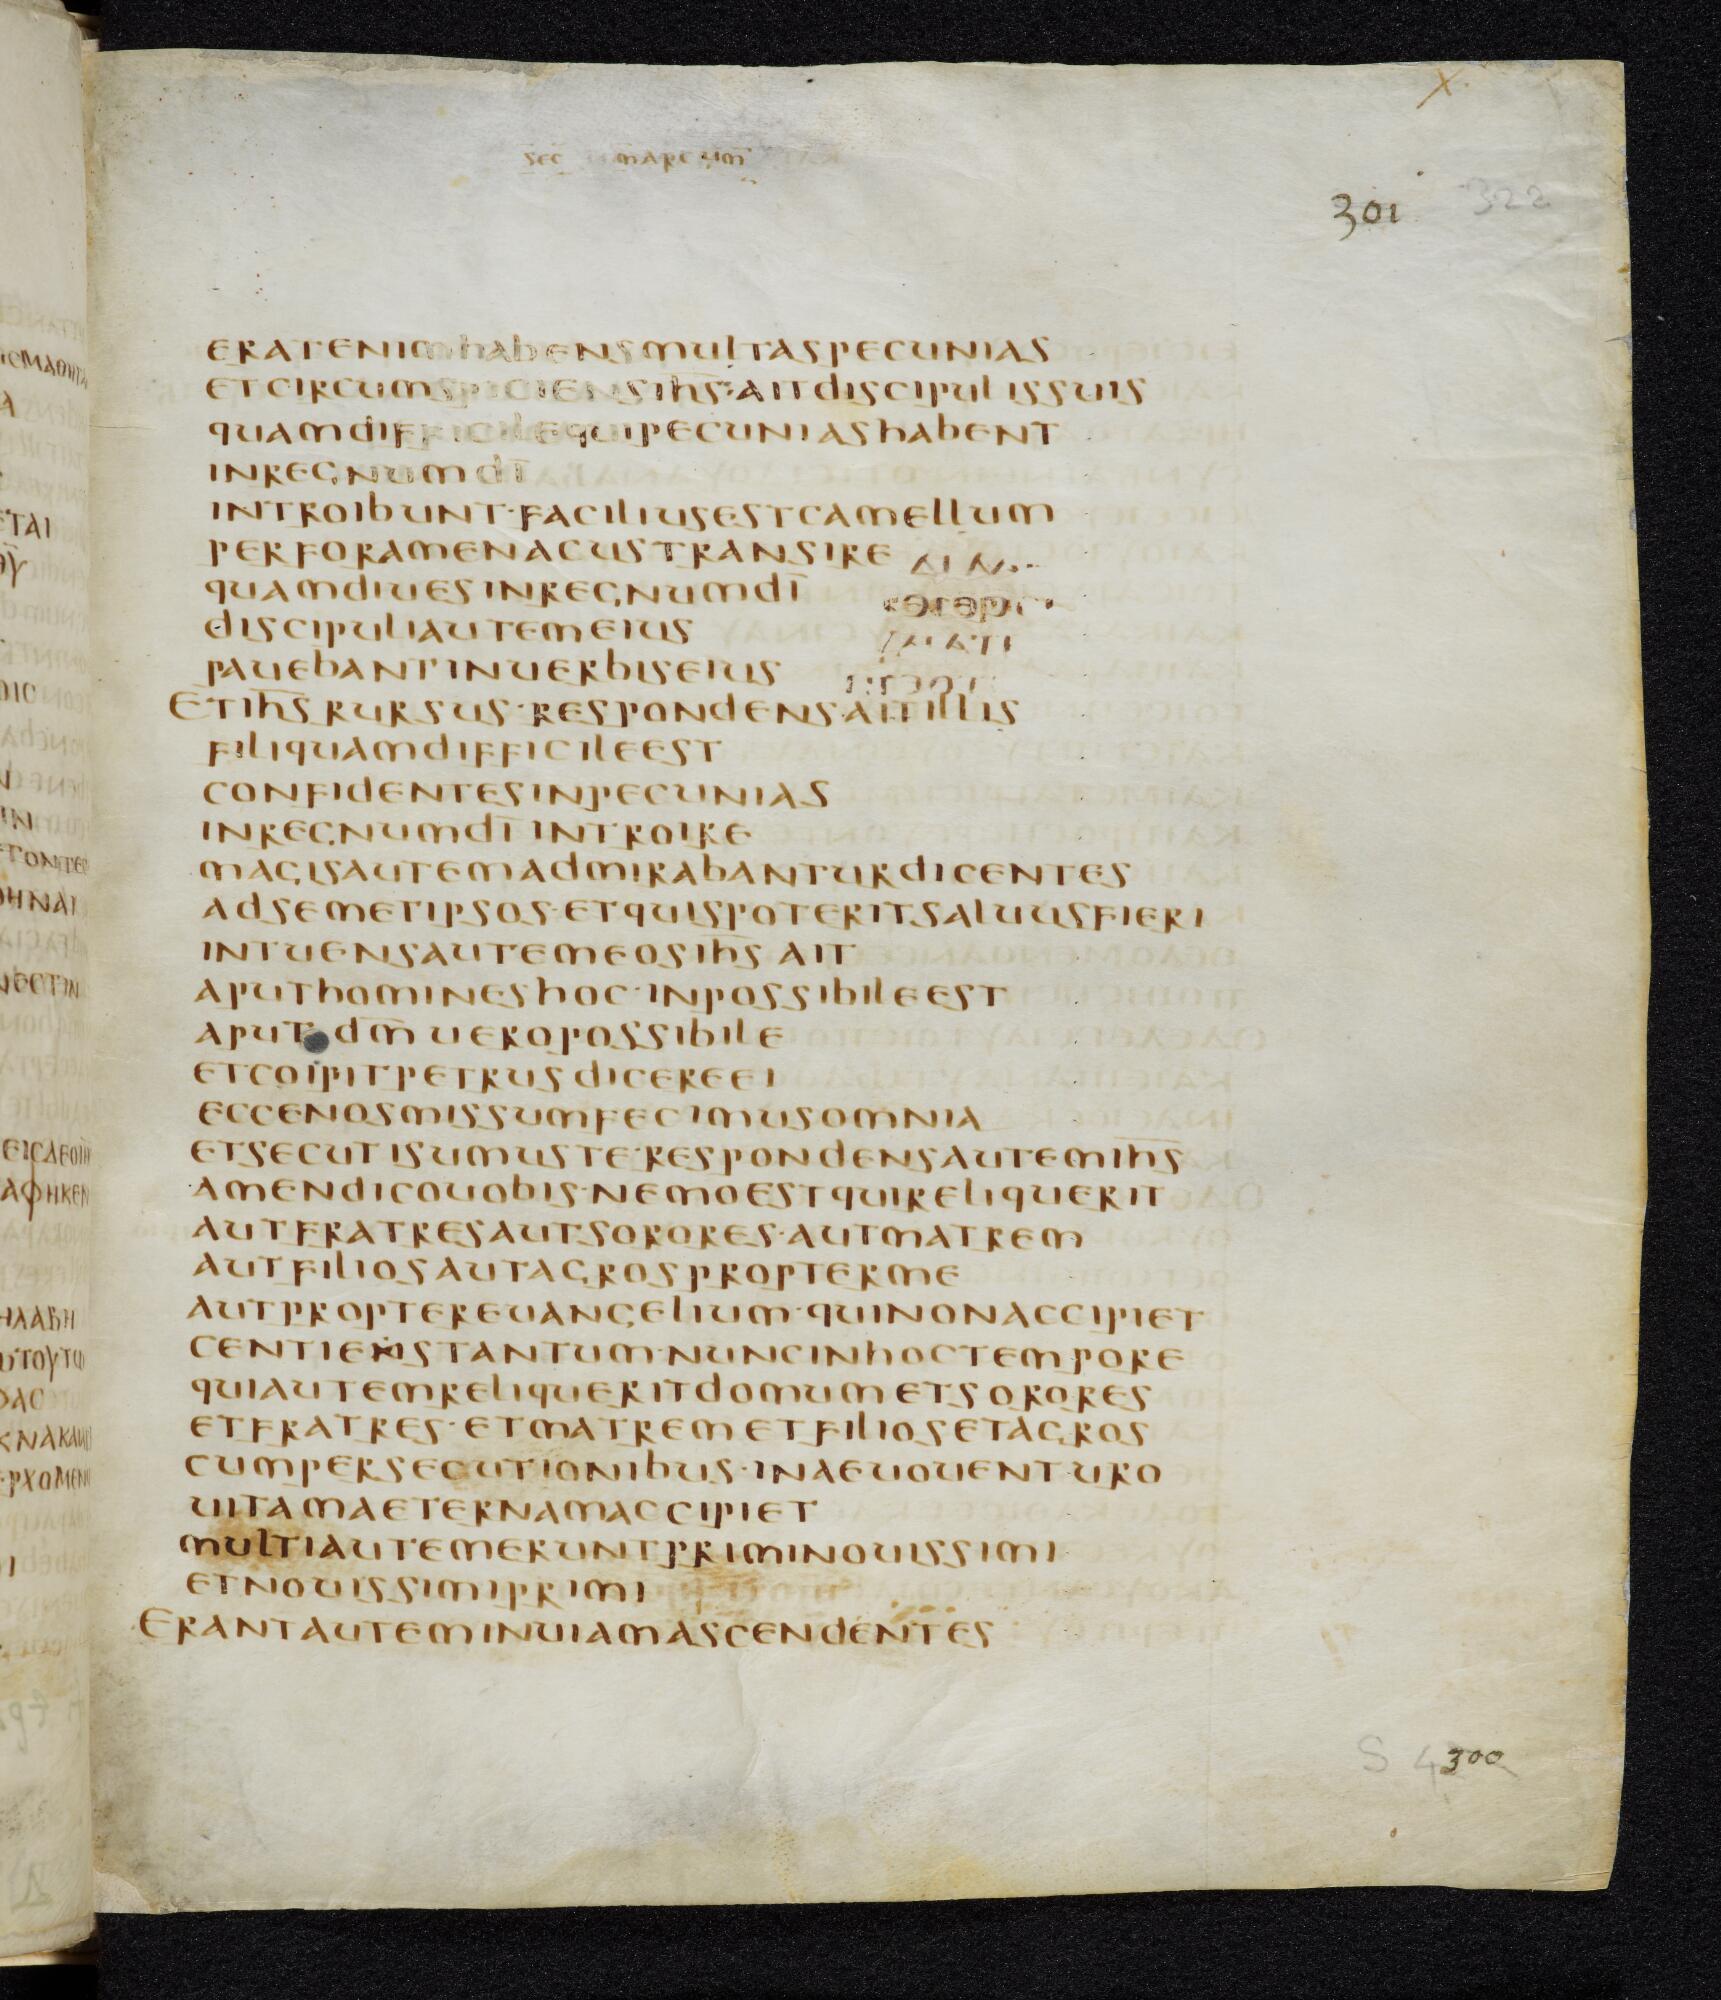 sec marcum
301
322
eratenimhabensmultaspecunias
etcircumspiciensihs·aitdiscipulissuis
quamdifficilequipecuniashabent
inregnumdi
introibunt·faciliusestcamellum
perforamenacustransire
quamdiuesinregnumdi
discipuliautemeius
pauebantinuerbiseius
Etihsrursus·respondens·aitillis
filiquamdifficileest
confidentesinpecunias
inregnumdi introire
magisautemadmirabanturdicentes
adsemetipsos·etquispoteritsaluusfieri
intuensautemeosihs ait
aputhomineshoc·inpossibileest
aput dm ueropossibile
etcoipitpetrusdicereei
eccenosmissumfecimusomnia
etsecutisumuste·respondensautemihs
amendicouobis·nemoestquireliquerit
autfratresautsorores·autmatrem
autfiliosautagrospropterme
autproptereuangelium·quinonaccipiet
tantum·nuncinhoctempore
quiautemreliqueritdomumetsorores
etfratres·etmatremetfiliosetagros
cumpersecutionibus·inaeuouenturo
uitamaeternamaccipiet
multiautemeruntpriminouissimi
etnouissimiprimi
Erantauteminuiamascendentes
300